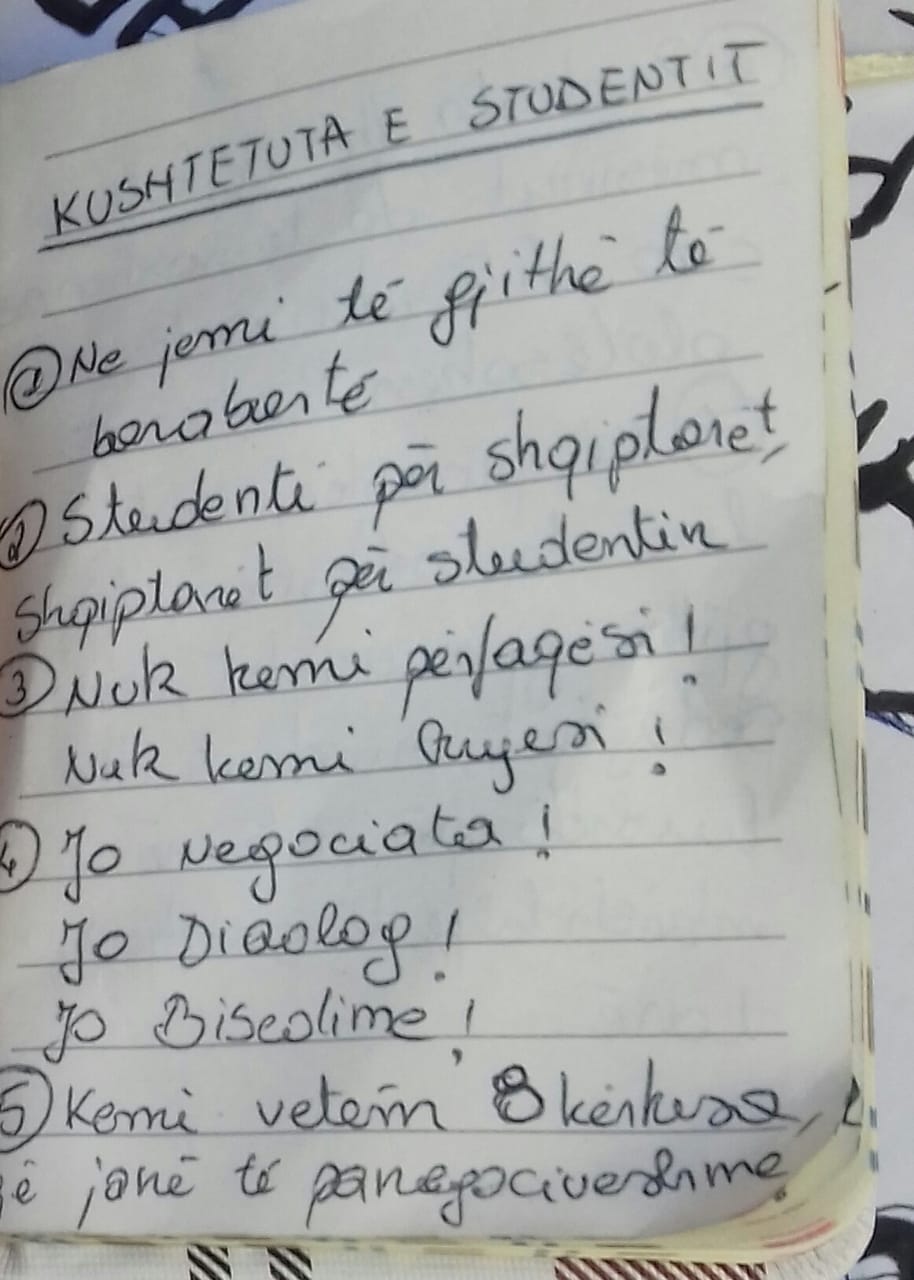 KUSHTETUTA E STUDENTIT
① Ne jemi të gjithë të
barabartë
② Studenti për shqiptarët,
shqiptarët për studentin
③ Nuk kemi përfaqësi!
Nuk kemi Qyesi!
④ Jo Negociata!
Jo Diaolog!
Jo Bisedime!
⑤ Kemi vetëm 8 kërkesa,
që janë të panegociueshme